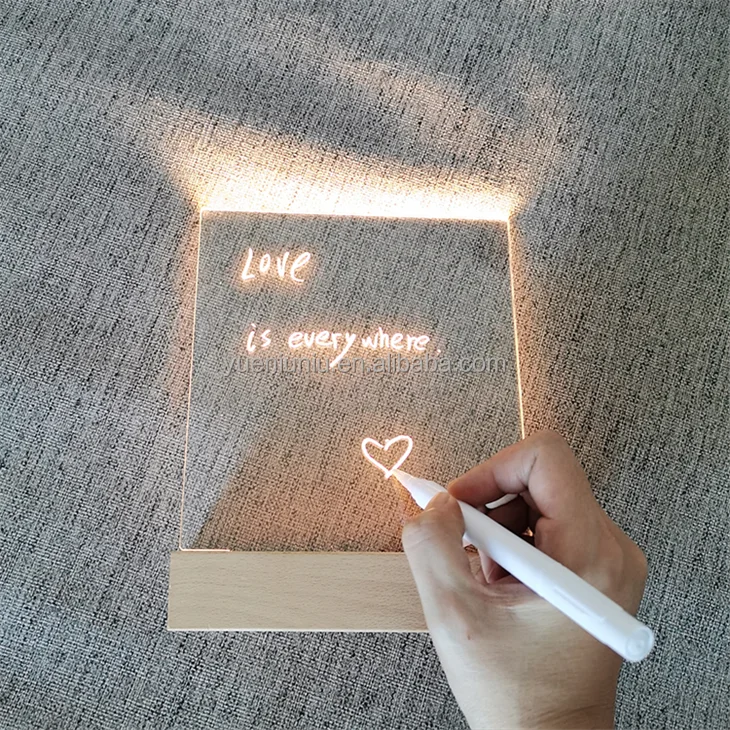 Love
is everywhere.
yuemuniu.en.alibaba.com